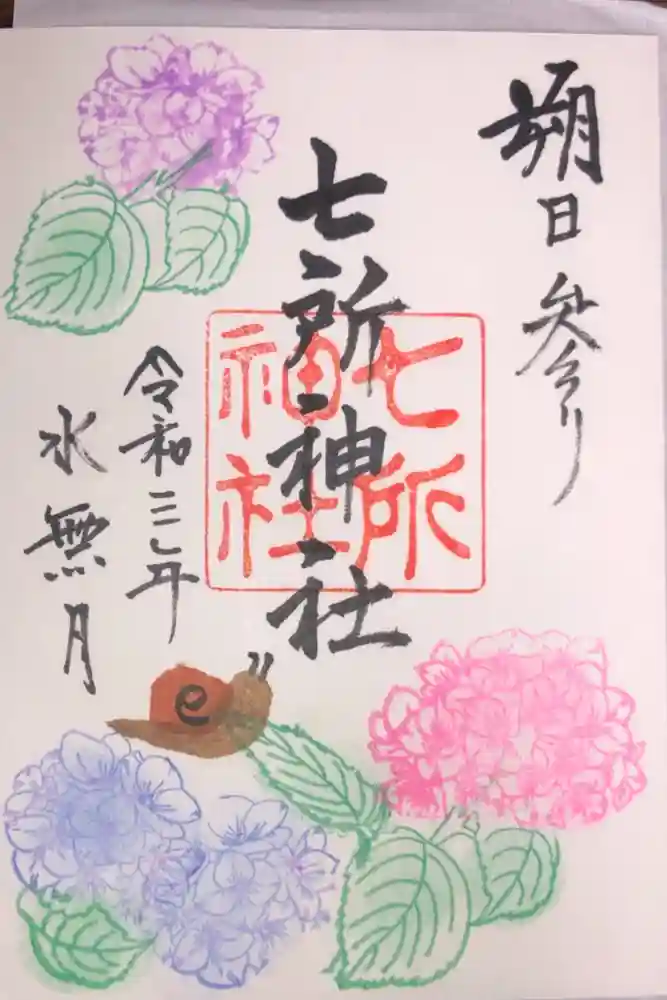 朔日参り
七所神社
七所
神社
令和三年
水無月
e